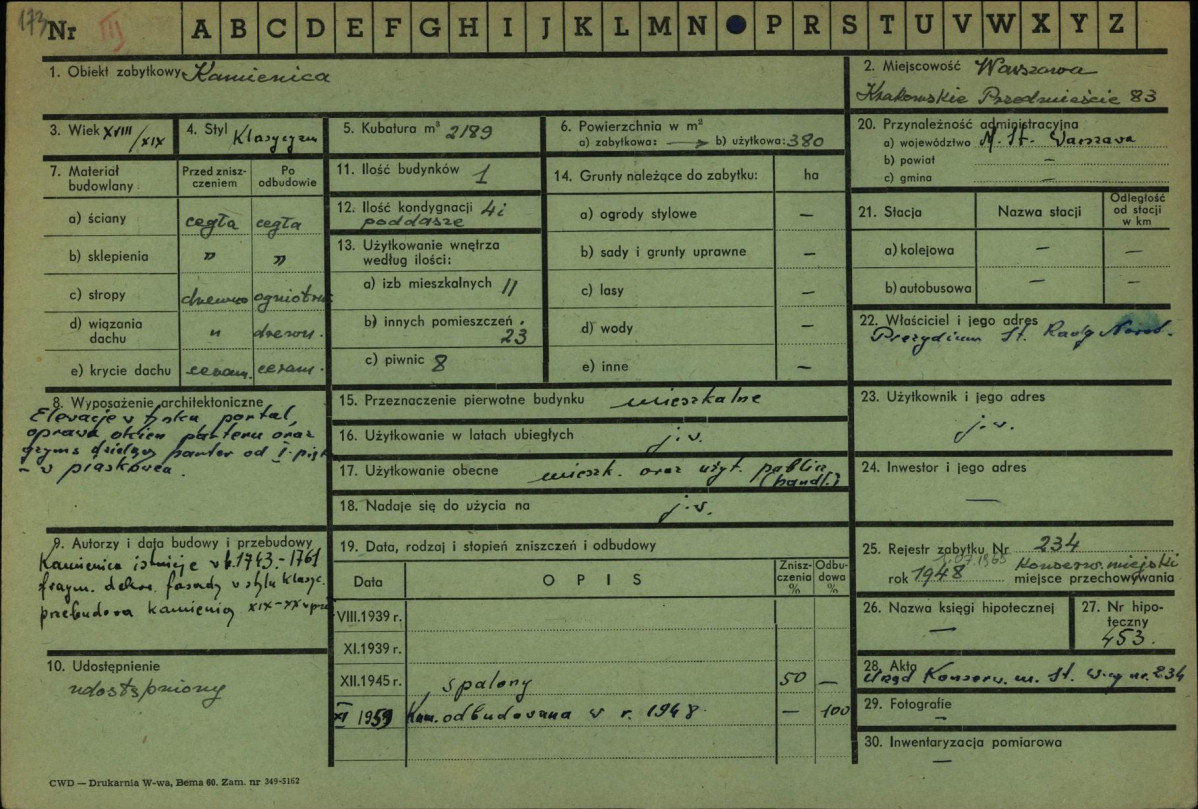 173 Nr III A B C D E F G H I J K L M N P R S T U V W X Y Z
1. Obiekt zabytkowy Kamienica
2. Miejscowość Warszawa
Krakowskie Przedmieście 83
3. Wiek XVIII
/XIX
4. Styl
Klasycyzm
5. Kubatura m³ 2189
6. Powierzchnia w m²
a) zabytkowa: — b) użytkowa: 380
7. Materiał
budowlany
Przed znisz-
czeniem
Po
odbudowie
a) ściany cegła cegła
b) sklepienia " "
c) stropy drewno ogniotrw.
d) wiązania
dachu " drewn.
e) krycie dachu ceram. ceram.
8. Wyposażenie architektoniczne
Elewacje w tynku portal,
oprawa okien parteru oraz
gzyms dzielący parter od I. pięt
– w piaskowca.
9. Autorzy i data budowy i przebudowy
Kamienica istnieje w 1743.-1761
fragm. dekor. fasady w stylu klasyc.
przebudowa kamienicy XIX-XX w
10. Udostępnienie
udostępniony
11. Ilość budynków 1
12. Ilość kondygnacji 4 i
poddasze
13. Użytkowanie wnętrza
według ilości:
a) izb mieszkalnych 11
b) innych pomieszczeń
23
c) piwnic 8
14. Grunty należące do zabytku: ha
a) ogrody stylowe —
b) sady i grunty uprawne —
c) lasy —
d) wody —
e) inne —
15. Przeznaczenie pierwotne budynku mieszkalne
16. Użytkowanie w latach ubiegłych j.w.
17. Użytkowanie obecne mieszk. oraz użyt. public
(handl.)
18. Nadaje się do użycia na j.w.
19. Data, rodzaj i stopień zniszczeń i odbudowy
Data OPIS Znisz-
czenia
%
Odbu-
dowa
%
VIII.1939 r.
XI.1939 r.
XII.1945 r. spalony 50 —
XI 1959 Kam. odbudowana w r. 1948 — 100
20. Przynależność administracyjna
a) województwo M. St. Warszawa
b) powiat —
c) gmina —
21. Stacja Nazwa stacji Odległość
od stacji
w km
a) kolejowa — —
b) autobusowa — —
22. Właściciel i jego adres
Prezydium St. Rady Narod.
23. Użytkownik i jego adres
j.w.
24. Inwestor i jego adres
—
25. Rejestr zabytku Nr 234
1.07.1965 Konserw. miejski
rok 1948 miejsce przechowywania
26. Nazwa księgi hipotecznej
—
27. Nr hipo-
teczny
453.
28. Akta
Urząd Konserw. m. St. W-wy nr. 234
29. Fotografie
—
30. Inwentaryzacja pomiarowa
—
CWD — Drukarnia W-wa, Bema 60. Zam. nr 349-5162